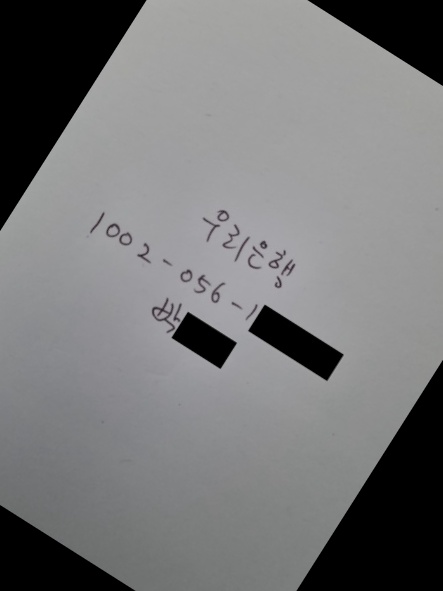 우리은행
1002-056-1